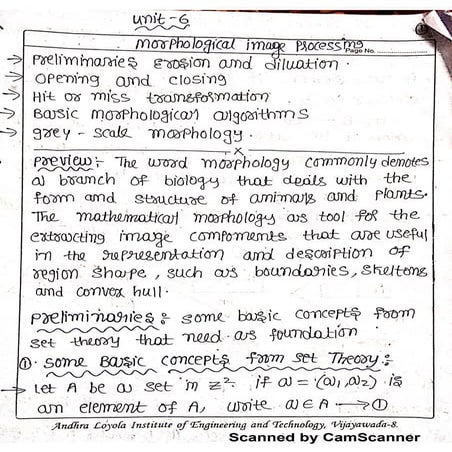 unit-6
morphological image processing
Page No.
→ preliminaries Erosion and diluation.
→ opening and closing
→ Hit or miss transformation
→ Basic morphological algorithms
→ grey-scale morphology.
x
preview:- The word morphology commonly denotes
a branch of biology that deals with the
form and structure of animals and plants.
The mathematical morphology as tool for the
extracting image components that are useful
in the representation and description of
region shape, such as boundaries, skeltons
and convex hull.
preliminaries: some basic concepts from
set theory that need as foundation
①. some Basic concepts from set Theory:
→ Let A be a set in Z². if a = (a₁,a₂) is
an element of A, write a∈A → ①
Andhra Loyola Institute of Engineering and Technology, Vijayawada-8.
Scanned by CamScanner